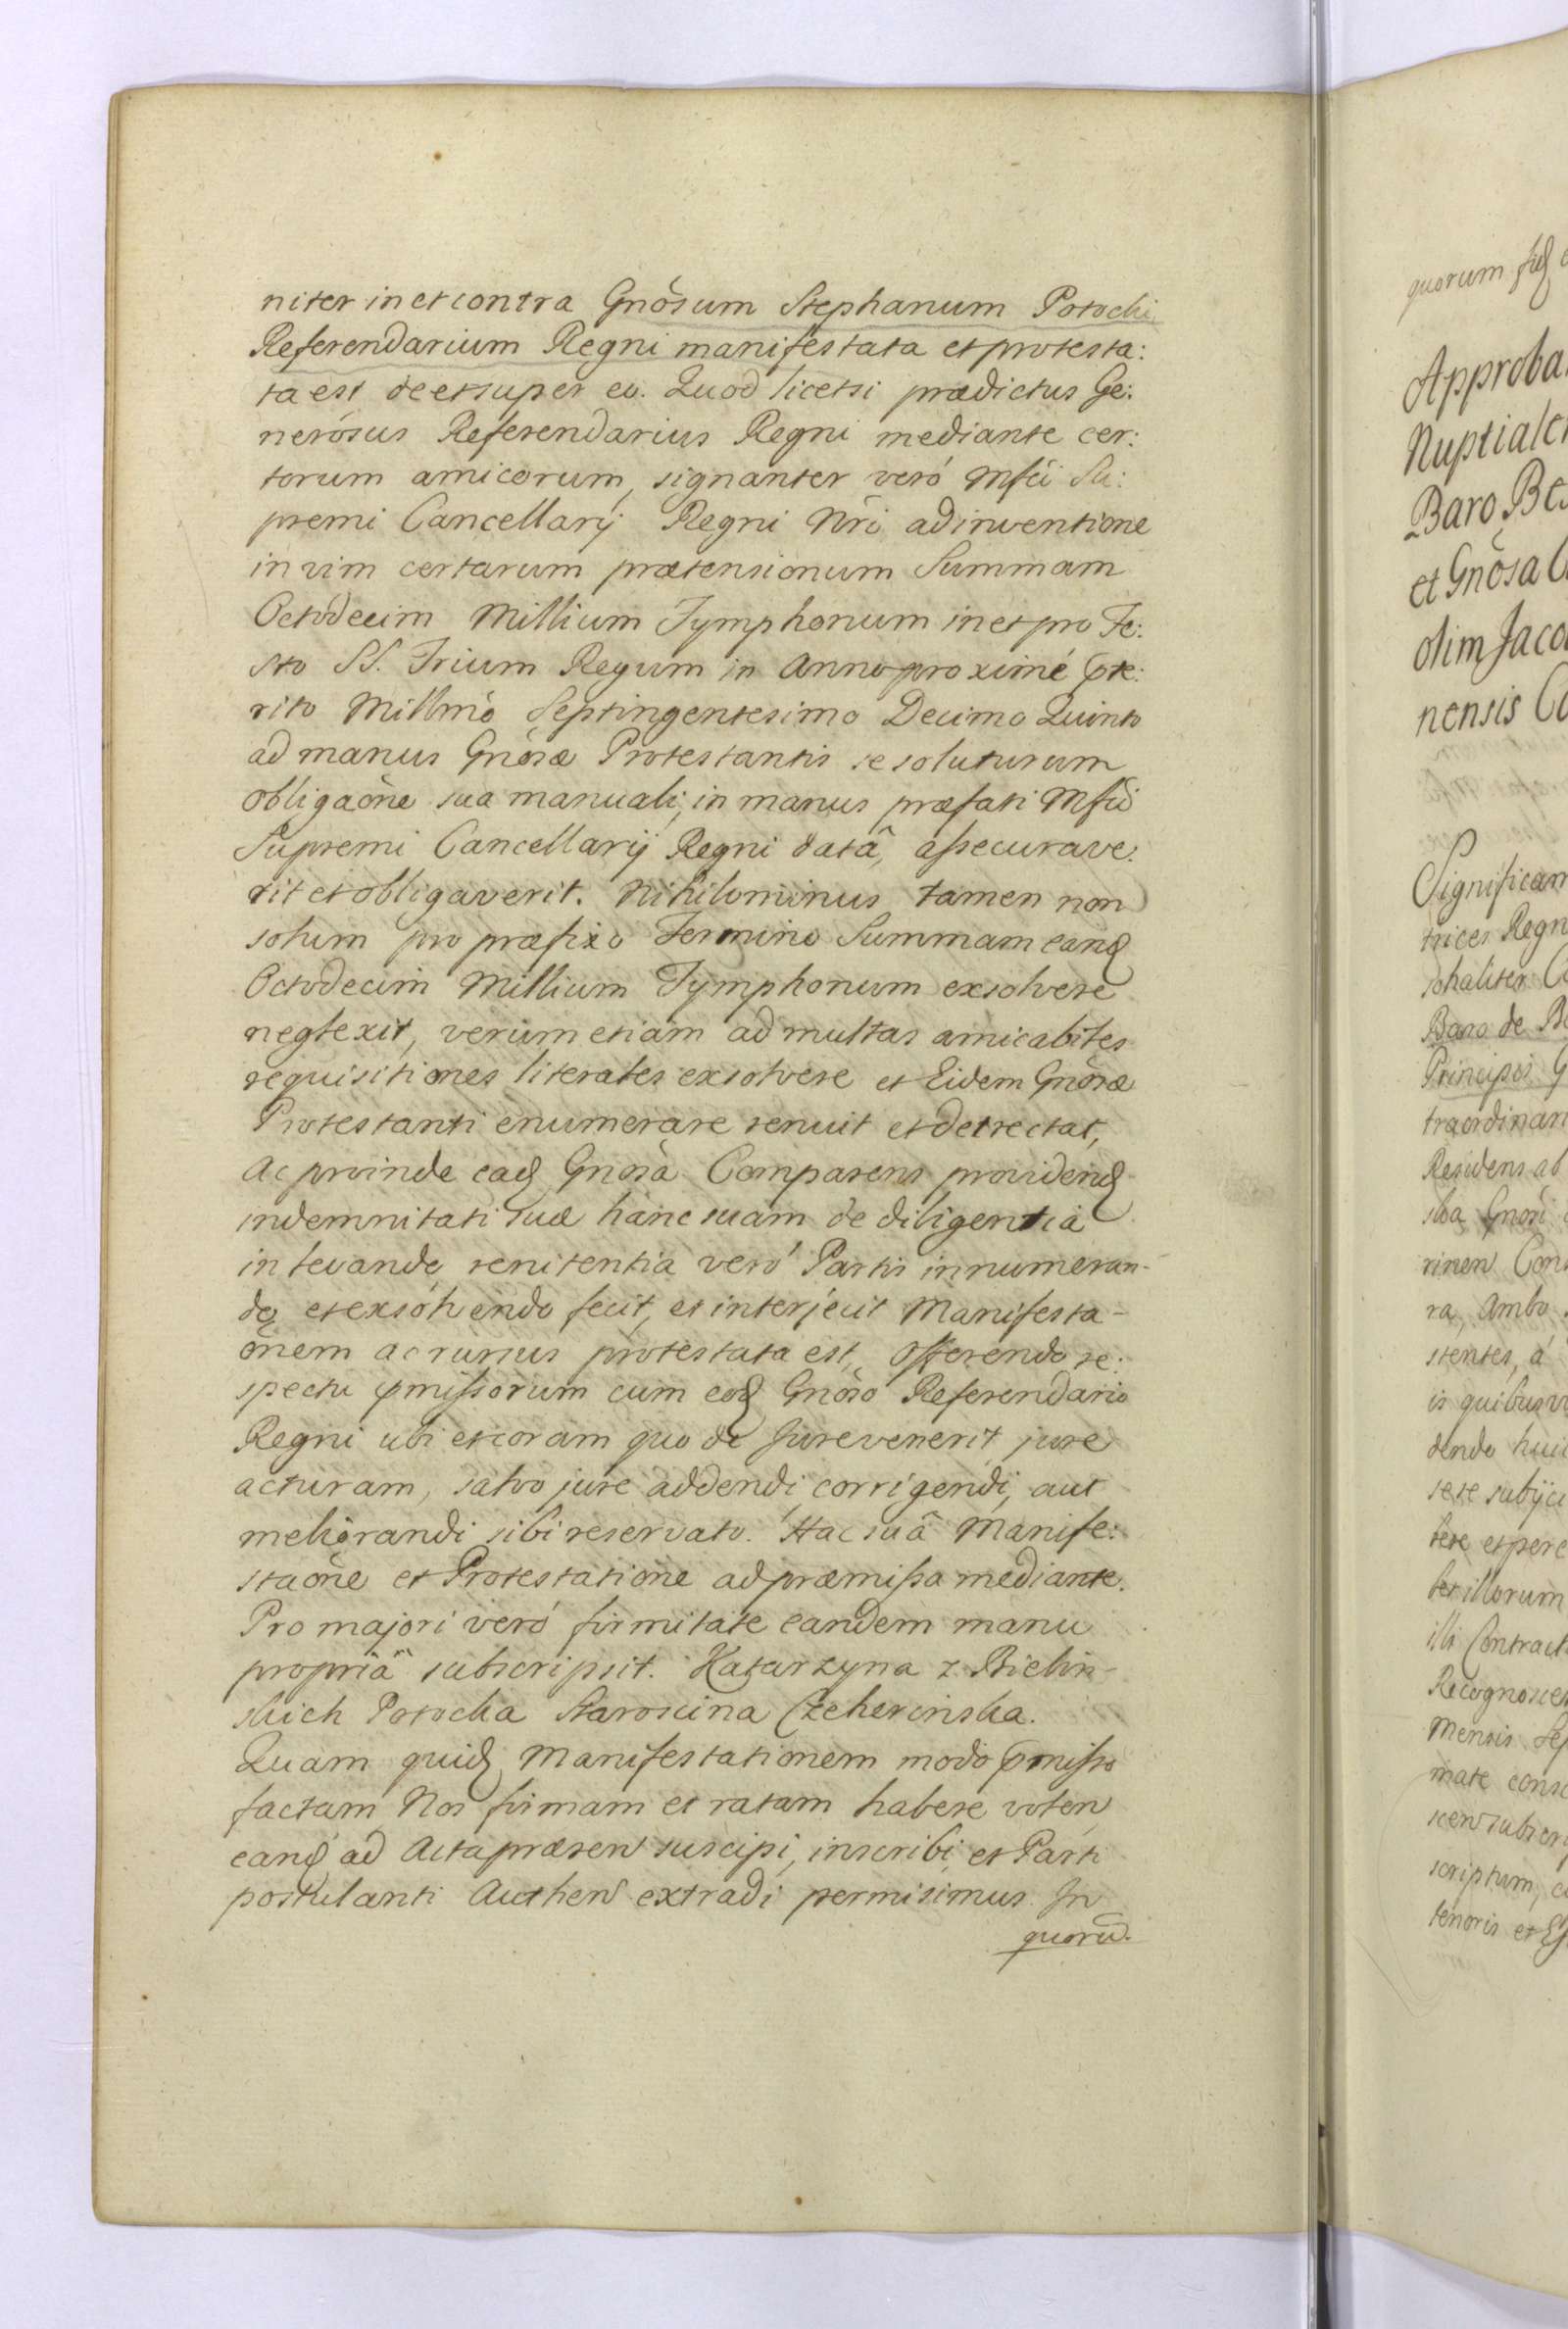 niter in et contra Gnõsum Stephanum Potocki
Referendarium Regni manifestata et protesta:
ta est de et super eo. Quod licetsi prædictus Ge:
nerosus Referendarius Regni mediante cer:
torum amicorum, signanter veró Mfci Su:
premi Cancellarij Regni Nri adinventione
in vim certarum prætensionum Summam
Octodecim Millium Tymphonum in et pro Fe:
sto SS. Trium Regum in Anno proximé pte:
rito Millmõ Septingentesimo Decimo Quinto
ad manus Gnõsæ Protestantis se soluturum
obligaõne sua manuali, in manus præfati Mfci
Supremi Cancellarij Regni datâ, assecurave:
rit et obligaverit. Nihilominus tamen non
solum pro præfixo Termino Summam eand
Octodecim Millium Tymphonum exsolvere
neglexit, verum etiam ad multas amicabiles
requisitiones literales exsolvere et Eidem Gnõsæ
Protestanti enumerare renuit et detrectat,
Ac proinde ead Gnõsa Comparens providend
indemnitati suæ hanc suam de diligentia
in levando, renitentia veró Partis in numeran-
do et exsolvendo fecit, et interjecit Manifesta-
õnem ac rursus protestata est, Offerendo re:
spectu pmissorum cum eod Gnõso Referendario
Regni ubi et coram quo de Jure venerit jure
acturam, salvo jure addendi, corrigendi, aut
meliorandi sibi reservato. Hac suâ Manife:
staõne et Protestatione ad præmissa mediante.
Pro majori veró firmitate eandem manu
propriâ subscripsit. Katarzyna z Bielin-
skich Potocka Staroscina Czehrinska.
Quam quid Manifestationem modo pmisso
factam Nos firmam et ratam habere volen
eand ad Acta præsen suscipi, inscribi et Parti
postulanti Authen extradi permisimus. In
quorũ.

quorum fid
Approba
Nuptiale
Baro Be
et Gnõsa
olim Jaco
nensis Co
Significam
trices Regn
Baro de B
Principis G
traordinar
Residens ab
ska Gnõsi
rinen Con
ra, Ambo
stentes, á
is quibusv
dendo huic
sese subijci
bere et pere
bet illorum
illi Contract
Recognosce
Mensis Se
mate conse
scen subscr
scriptum,
tenoris et